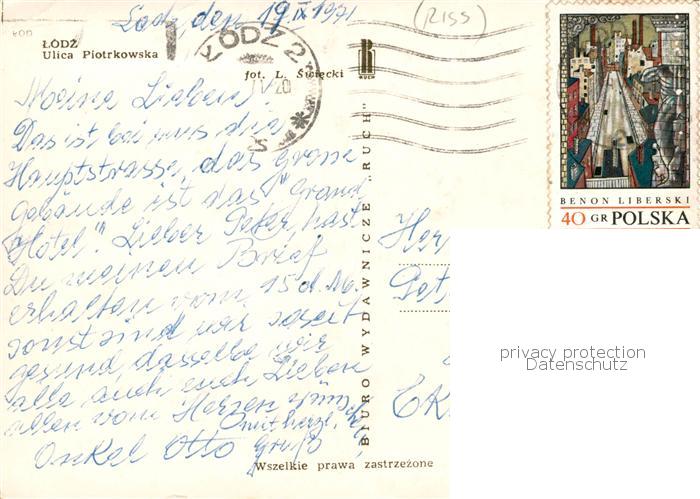 Lodz, den 19 IX 1971
(RISS)
ŁÓDŹ
Ulica Piotrkowska
fot. L. Święcki
RUCH
ŁÓDŹ 2
BENON LIBERSKI
40 GR POLSKA
Meine Lieben!
Das ist bei uns die
Hauptstrasse, das grosse
gebäude ist das "Grand
Hotel". Lieber Peter, hast
Du meinen Brief
erhalten vom 15 d. M.
sonst sind wir soweit
gesund, dasselbe wir
alle auch euch Lieben
allen vom Herzen
mit herzl.
Onkel Otto Gruß
BIURO WYDAWNICZE „RUCH”
Her
Pet
Wszelkie prawa zastrzeżone
privacy protection
Datenschutz